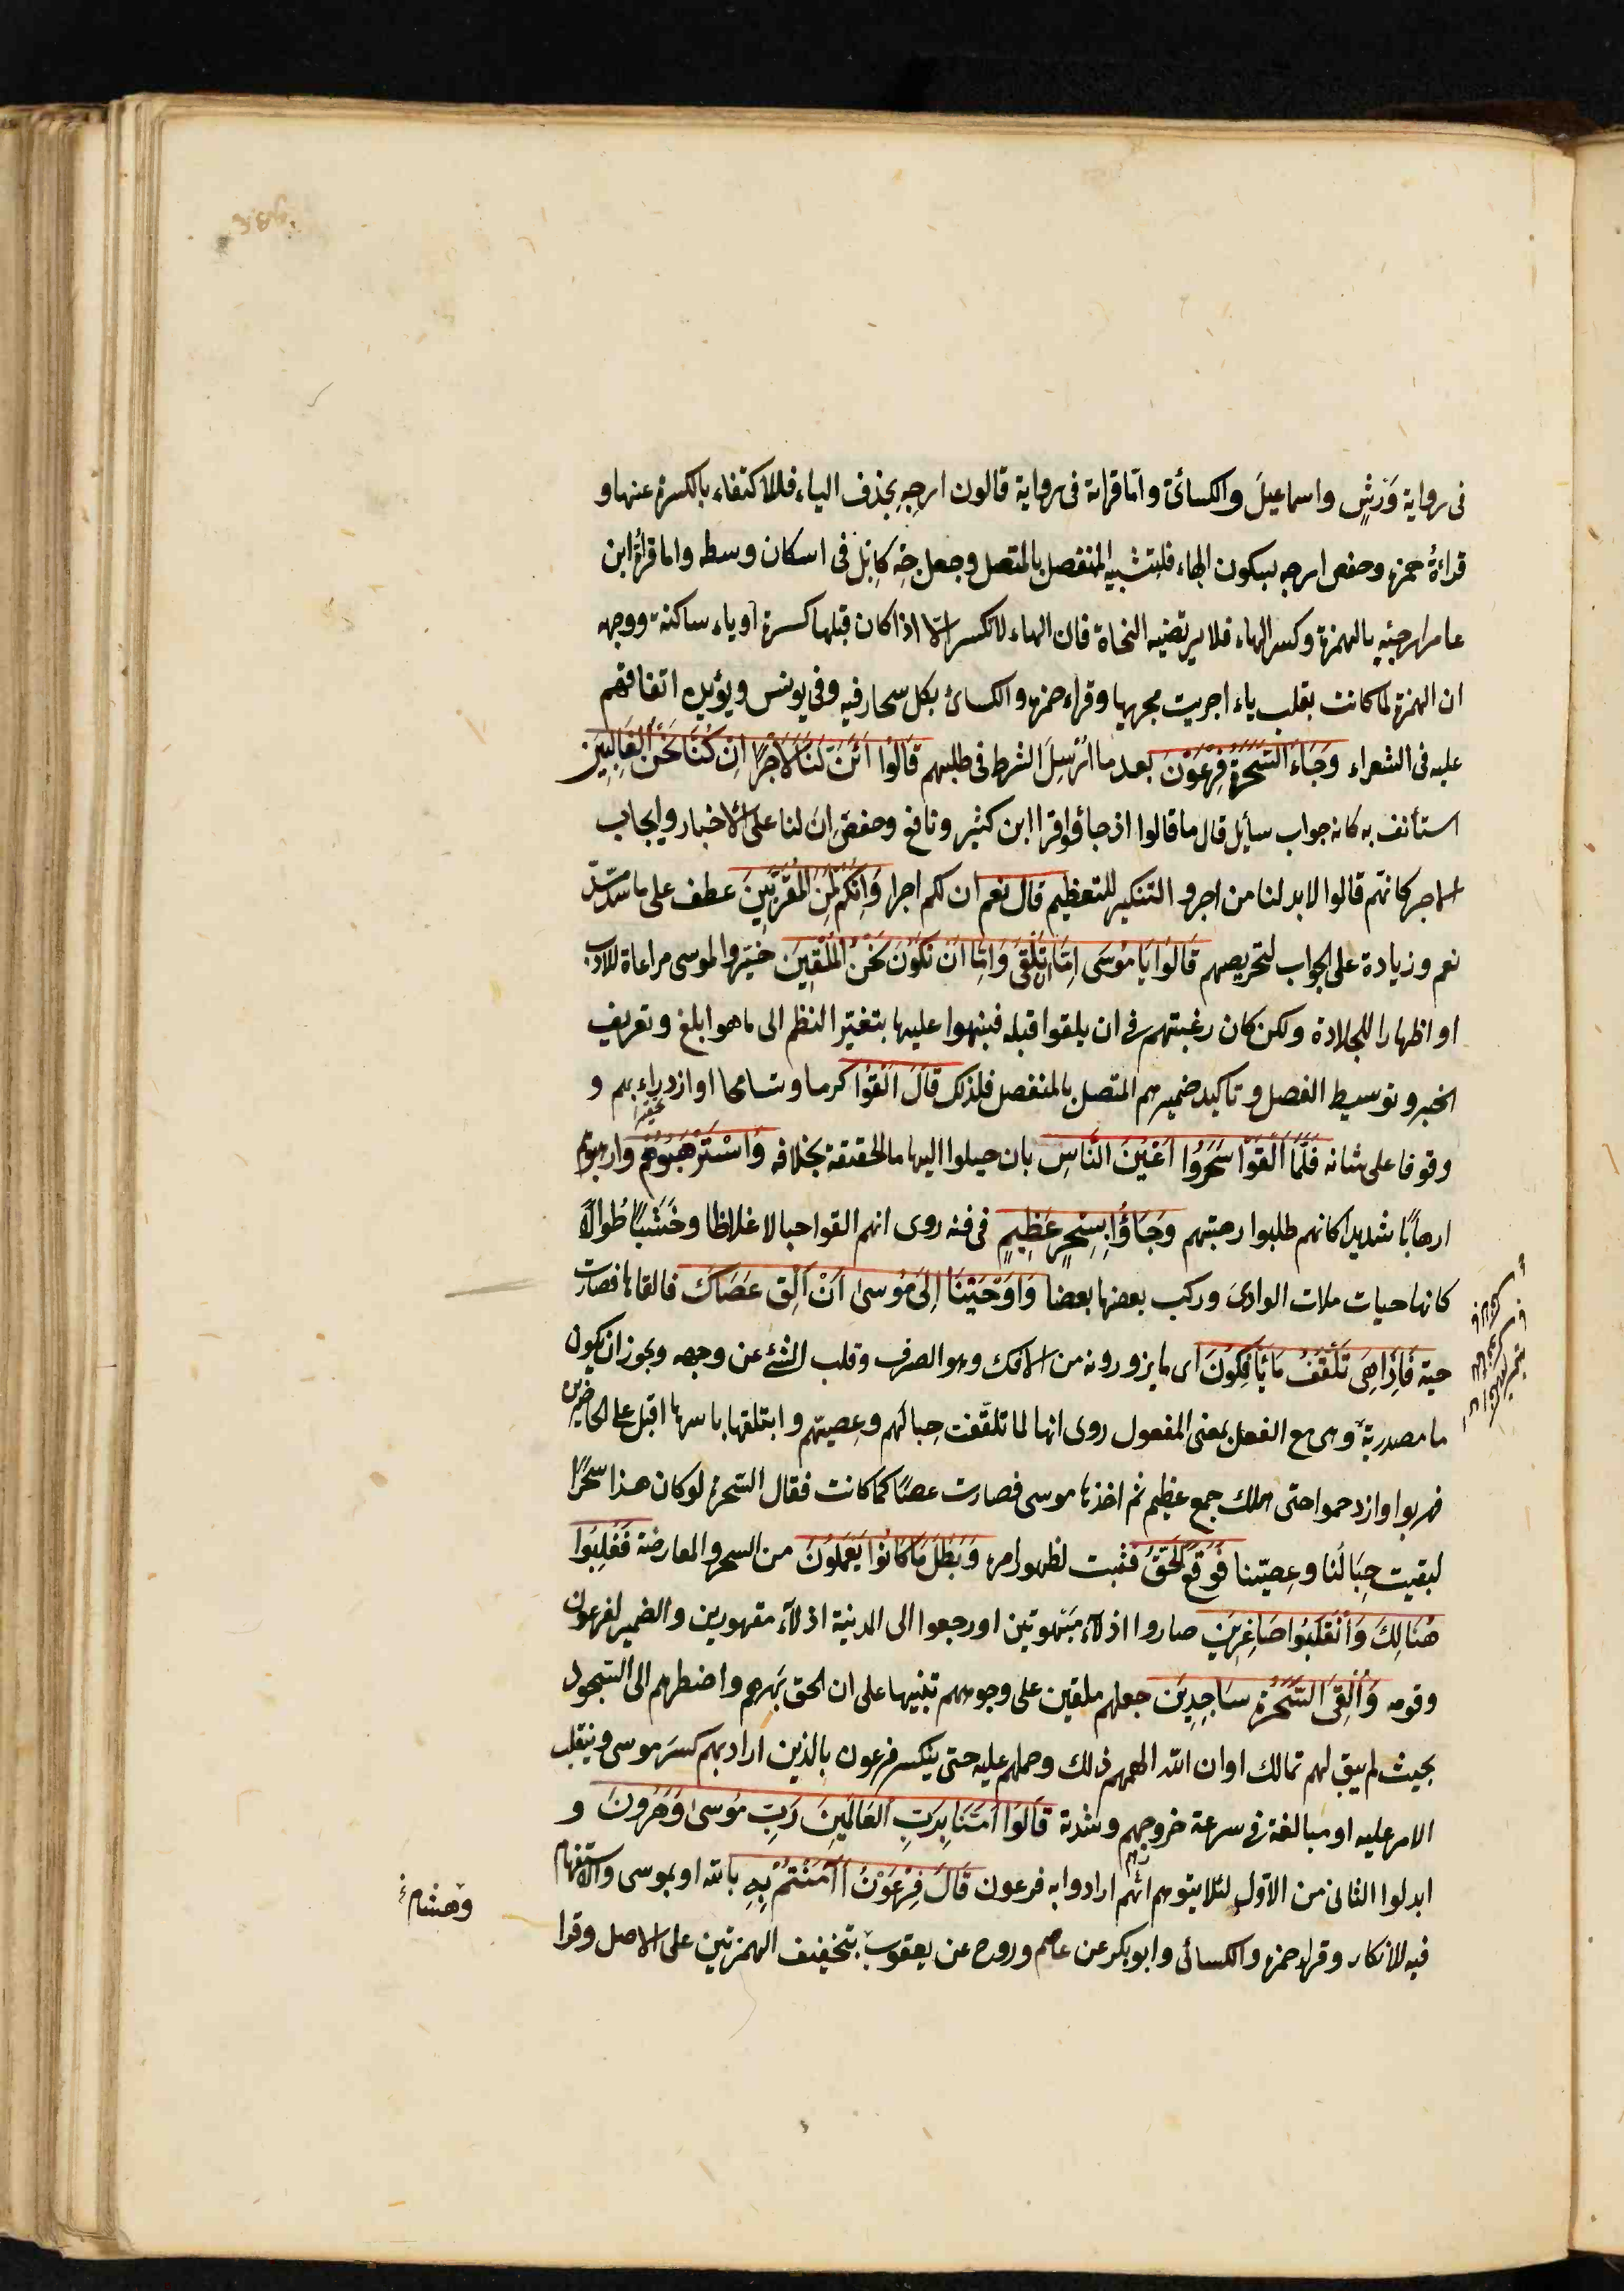 فى رواية وَرْشٍ واسماعيل والكسائى واما قراته فى رواية قالون ارجِهِ بحذف الياء فللاكتفاء بالكسرة عنها و
قراءةُ حمزة وحفص ارجه بسكون الهاء فلتشبيه المنفصل بالمتصل وجعل جِهْ كَابِلْ فى اسكان وسطه واما قرأة ابن
عامر ارجئهِ بالهمزة وكسر الهاء فلا يرتضيه النحاة فان الهاء لا تكسر الا اذا كان قبلها كسرة او ياء ساكنة ووجهه
ان الهمزة لما كانت بقلب ياء اجريت مجريها وقراء حمزة والكسائى بكل سحار فيه وفى يونس ويؤيده اتفاقهم
عليه فى الشعراء وَجَاءَ السَّحَرَةُ فِرْعَوْنَ بعد ما ارْسِلَ الشرط فى طلبهم قَالُوا ائِنَّ لَنَا لَاَجْرًا اِنْ كُنَّا نَحْنُ الْغَالِبِينَ
استأنف به كانه جواب سأيل قال ما قالوا اذ جاؤا وقرا ابن كثير ونافع وحفص ان لنا على الاخبار وايجاب
الاجر كانهم قالوا لابد لنا من اجر و التنكير للتعظيم قال نعم ان لكم اجرا وَاِنَّكُمْ لَمِنَ الْمُقَرَّبِينَ عطف على ما سدّ مسدّه
نعم وزيادة على الجواب لتحريصهم قَالُوا يَا مُوسَى اِمَّا اَنْ تُلْقِىَ وَاِمَّا اَنْ نَكُونَ نَحْنُ الْمُلْقِينَ خيّروا لموسى مراعاة للادب
او اظهارا للجلادة ولكن كان رغبتهم فى ان يلقوا قبله فنبهوا عليها بتغيّر النظم الى ما هو ابلغ وتعريف
الخبر وتوسيط الفصل وتاكيد ضميرهم المتصل بالمنفصل فلذلك قَالَ اَلْقُوا كرما وتسامحا او ازدراء بهم و
وقوفا على شانه فَلَمَّا اَلْقَوْا سَحَرُوا اَعْيُنَ النَّاسِ بان خيلوا اليها ما الحقيقة بخلافه وَاسْتَرْهَبُوهُمْ وارهبوهم
ارهابًا شديدا كانهم طلبوا رهبتهم وَجَاؤُا بِسِحْرٍ عَظِيمٍ فى فنه روى انهم القوا حبالا غلاظا وخَشَبًا طُوالًا
كانها حيات ملات الوادى وركب بعضها بعضا وَاَوْحَيْنَا اِلَى مُوسىٰ اَنْ اَلْقِ عَصَاكَ فالقاها فصارت
حية فَاِذَا هِىَ تَلْقَفُ مَا يَاْفِكُونَ اى ما يزورونه من الافك وهو الصرف وقلب الشئ عن وجهه ويجوز ان يكون
ما مصدرية وهى مع الفعل بمعنى المفعول روى انها لما تلقّفت حِبالهم وعِصيّهم وابتلعتها باسرها اقبل على الحاضرين
فهربوا وازدحموا حتى هلك جمع عظيم ثم اخذها موسى فصارت عصًا كما كانت فقال السّحرة لو كان هذا سحرًا
لبقيت حِبَالُنا وعِصيّنا فَوَقَعَ الْحَقُّ فثبت لظهور امره وَبَطَلَ مَا كَانُوا يَعْمَلُونَ من السحر والمعارضة فَغُلِبُوا
هُنَالِكَ وَانْقَلَبُوا صَاغِرِينَ صاروا اذلاء مبهوتين او رجعوا الى المدينة اذلآء مقهورين والضمير لفرعون
وقومه وَاُلْقِىَ السَّحَرَةُ سَاجِدِينَ جعلهم ملقين على وجوههم تنبيها على ان الحق بَهرهم واضطرهم الى السّجود
بحيث لم يبق لهم تمالك او ان الله الهمهم ذلك وحملهم عليه حتى ينكسر فرعون بالذين اراد بهم كسر موسى وينقلب
الامر عليه او مبالغة فى سرعة خرورهم وشدته قَالُوا اٰمَنَّا بِرَبِّ الْعَالَمِينَ رَبِّ مُوسىٰ وَهٰرُونَ و
ابدلوا الثانى من الاوّل لئلا يتوهم انّهم ارادوا به فرعون قَالَ فِرْعَوْنُ ااٰمَنْتُمْ بِهِ بالله او بموسى والاستفهام
فيه للانكار وقراء حمزة والكسائى وابو بكر عن عاصم وروح عن يعقوب بتخفيف الهمزتين على الاصل وقرا
وهشام